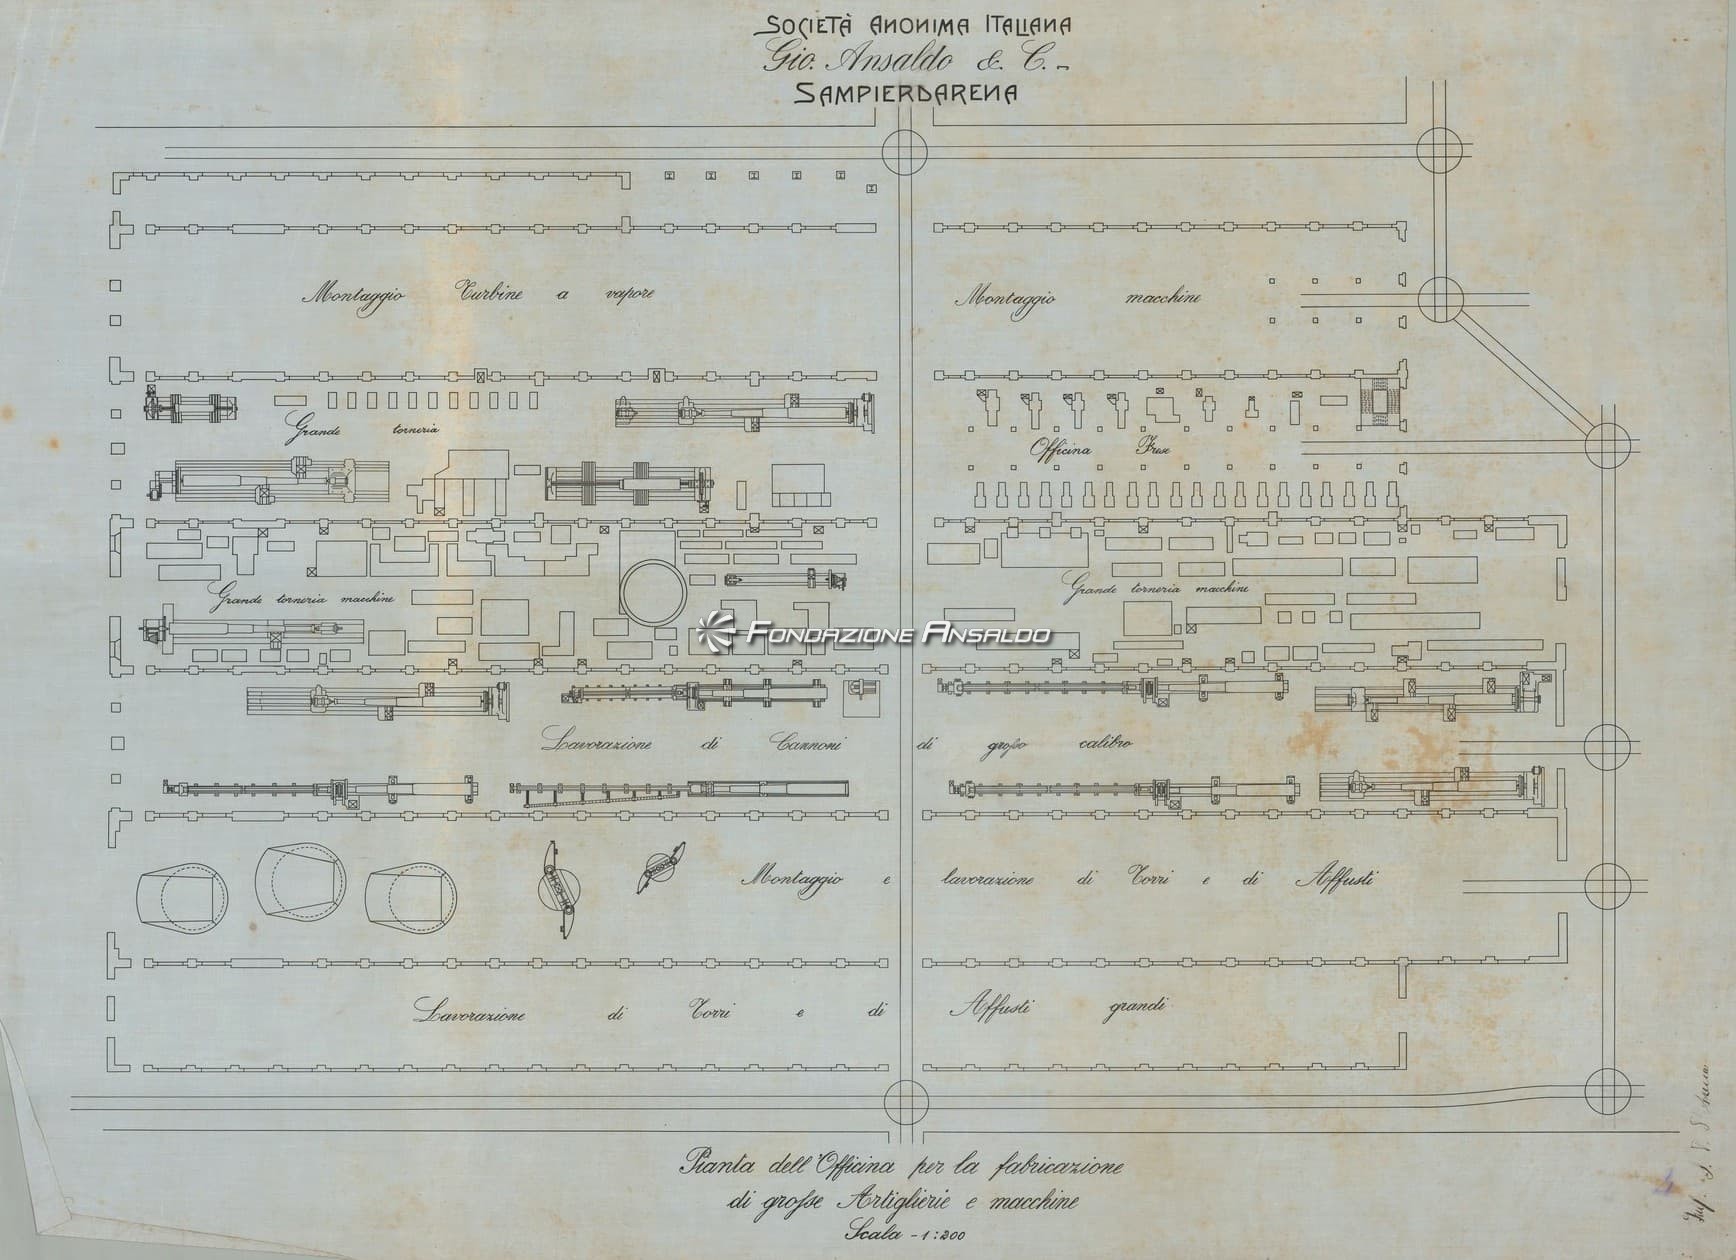 SOCIETÀ ANONIMA ITALIANA
Gio. Ansaldo & C.
SAMPIERDARENA
Montaggio Turbine a vapore
Montaggio macchine
Grande torneria
Officina Frese
Grande torneria macchine
Grande torneria macchine
FONDAZIONE ANSALDO
Lavorazione di Cannoni di grosso calibro
Montaggio e lavorazione di Torri e di Affusti
Lavorazione di Torri e di Affusti grandi
Pianta dell'Officina per la fabricazione
di grosse Artiglierie e macchine
Scala - 1:200